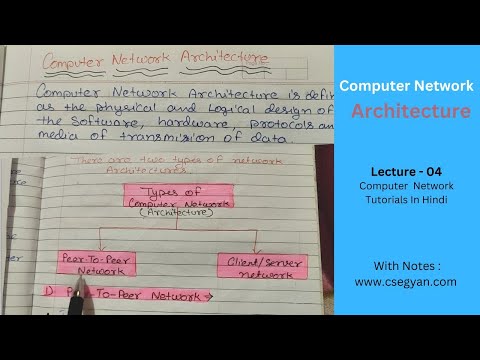 Computer Network Architecture
Computer Network Architecture is defin
as the physical and Logical design of
the Software, hardware, protocols an
media of transmission of data.
There are two types of network
Architectures.
Types of
Computer Network
(Architecture)
Peer-To-Peer
Network
Client/Server
network
1). Peer-To-Peer Network →
Computer Network
Architecture
Lecture - 04
Computer Network
Tutorials In Hindi
With Notes :
www.csegyan.com